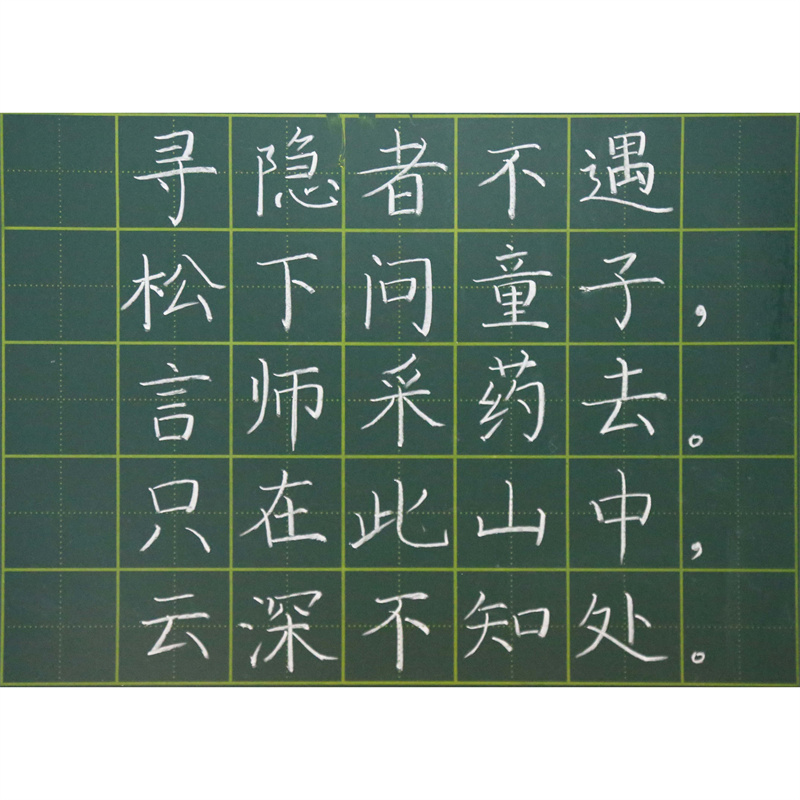 寻隐者不遇
松下问童子，
言师采药去。
只在此山中，
云深不知处。